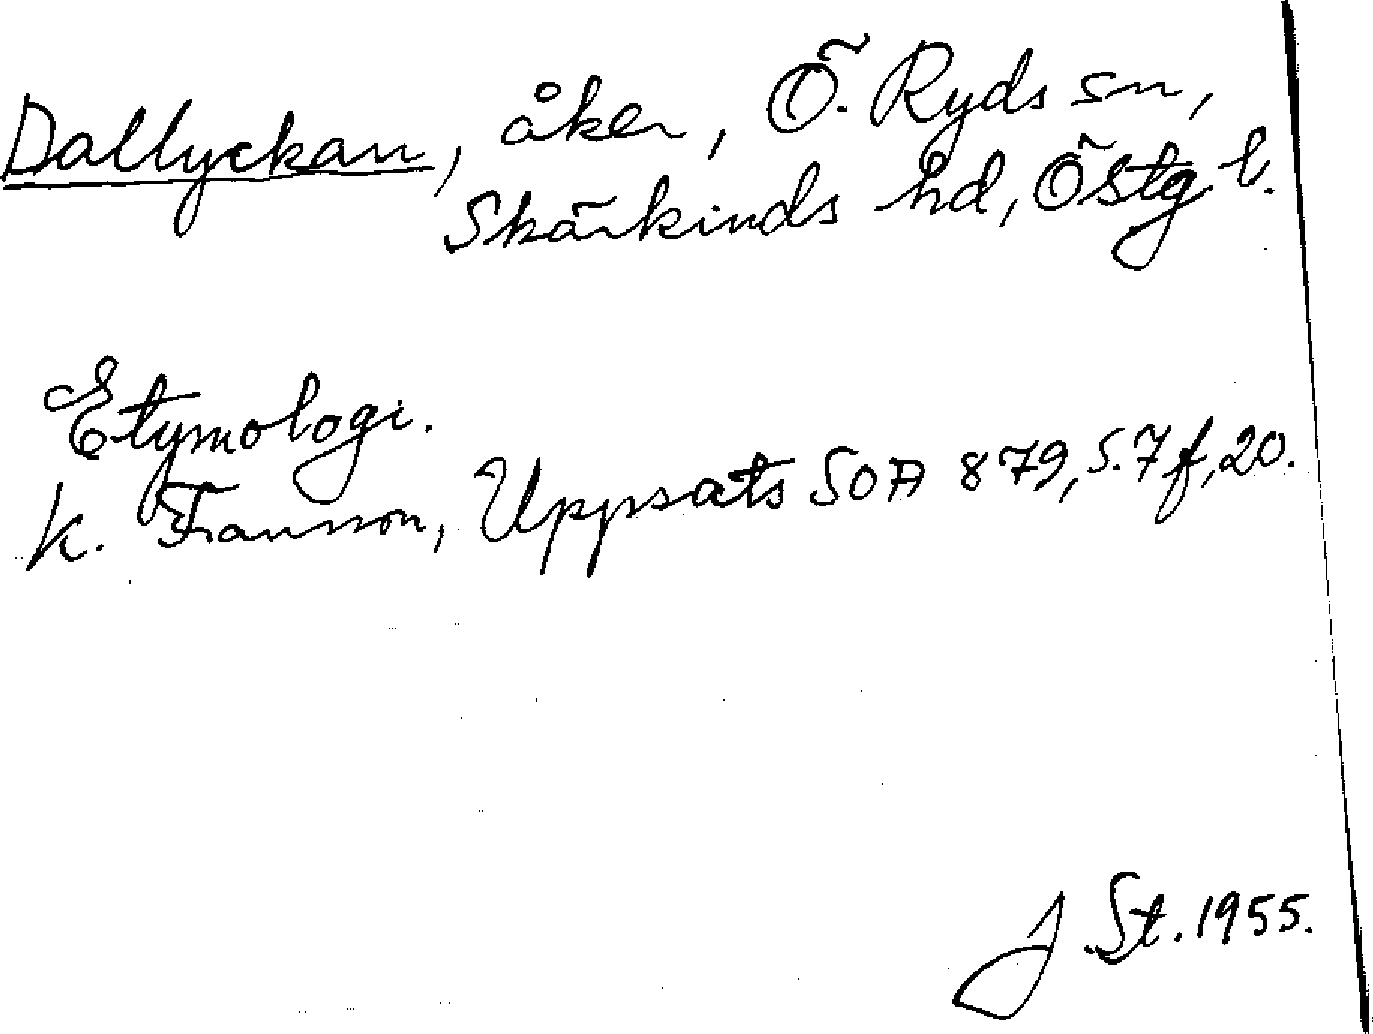 Dallyckan, åker, Ö. Ryds sn,
Skärkinds hd, Östg. l.
Etymologi.
K. Fransson, Uppsats SOA 879, s. 7 f, 20.
J. St. 1955.